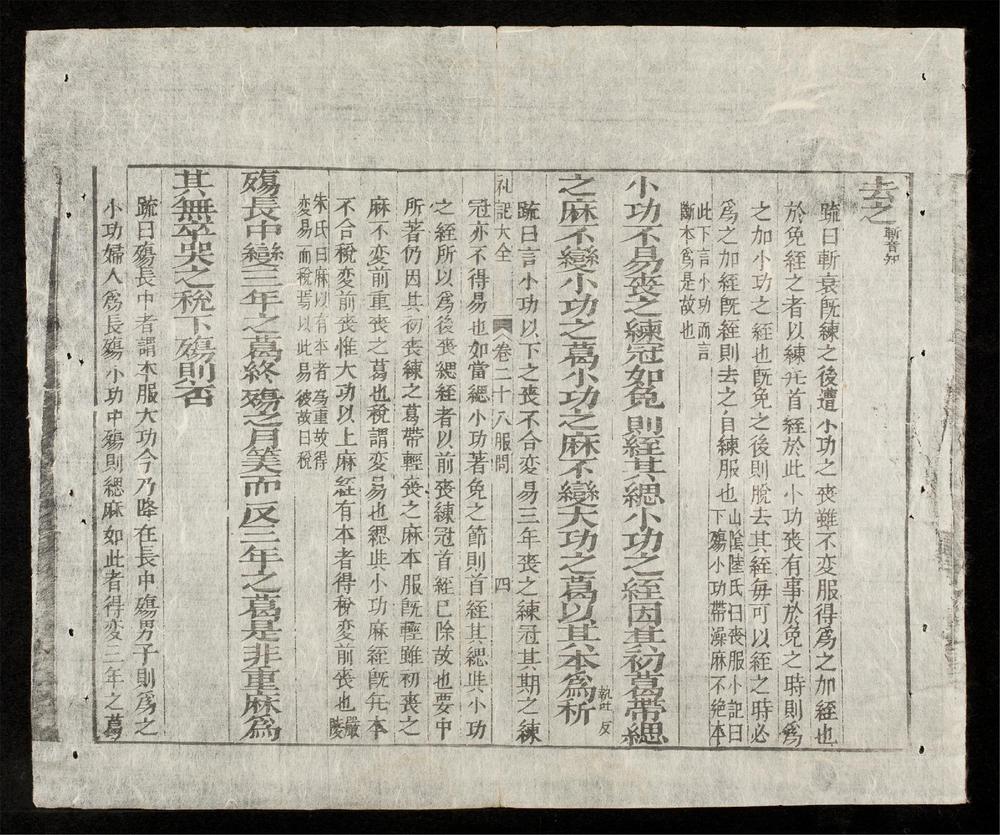 去之 斬音知
疏曰斬衰旣練之後遭小功之喪雖不変服得爲之加絰也
於免絰之者以練无首絰於此小功喪有事於免之時則爲
之加小功之絰也旣免之後則脫去其絰每可以絰之時必
爲之加絰旣絰則去之自練服也 山陰陸氏曰喪服小記曰
下殤小功帶澡麻不絶本
此下言小功而言
斷本爲是故也
小功不易喪之練冠如免則絰其緦小功之絰因其初葛帶緦
之麻不變小功之葛小功之麻不變大功之葛以其本爲稅 執吐反
疏曰言小功以下之喪不合変易三年喪之練冠其期之練
礼記大全 卷二十八服問 四
冠亦不得易也如當緦小功著免之節則首絰其緦與小功
之絰所以爲後喪緦絰者以前喪練冠首絰已除故也要中
所著仍因其初喪練之葛帶輕喪之麻本服旣輕雖初喪之
麻不変前重喪之葛也稅謂変易也緦與小功麻絰旣无本
不合稅変前喪惟大功以上麻絰有本者得稅変前喪也 嚴陵
朱氏曰麻以有本者爲重故得
変易而稅焉以此易彼故曰稅
殤長中變三年之葛終殤之月筭而反三年之葛是非重麻爲
其無卒哭之稅下殤則否
疏曰殤長中者謂本服大功今乃降在長中殤男子則爲之
小功婦人爲長殤小功中殤則緦麻如此者得変三年之葛